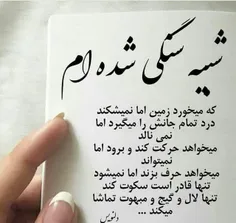 شبیه سنگی شده ام
که میخورد زمین اما نمیشکند
درد تمام جانش را میگیرد اما
نمی نالد
میخواهد حرکت کند و برود اما
نمیتواند
میخواهد حرف بزند اما نمیشود
تنها قادر است سکوت کند
تنها لال و گیج و مبهوت تماشا
میکند ...
دلنویس